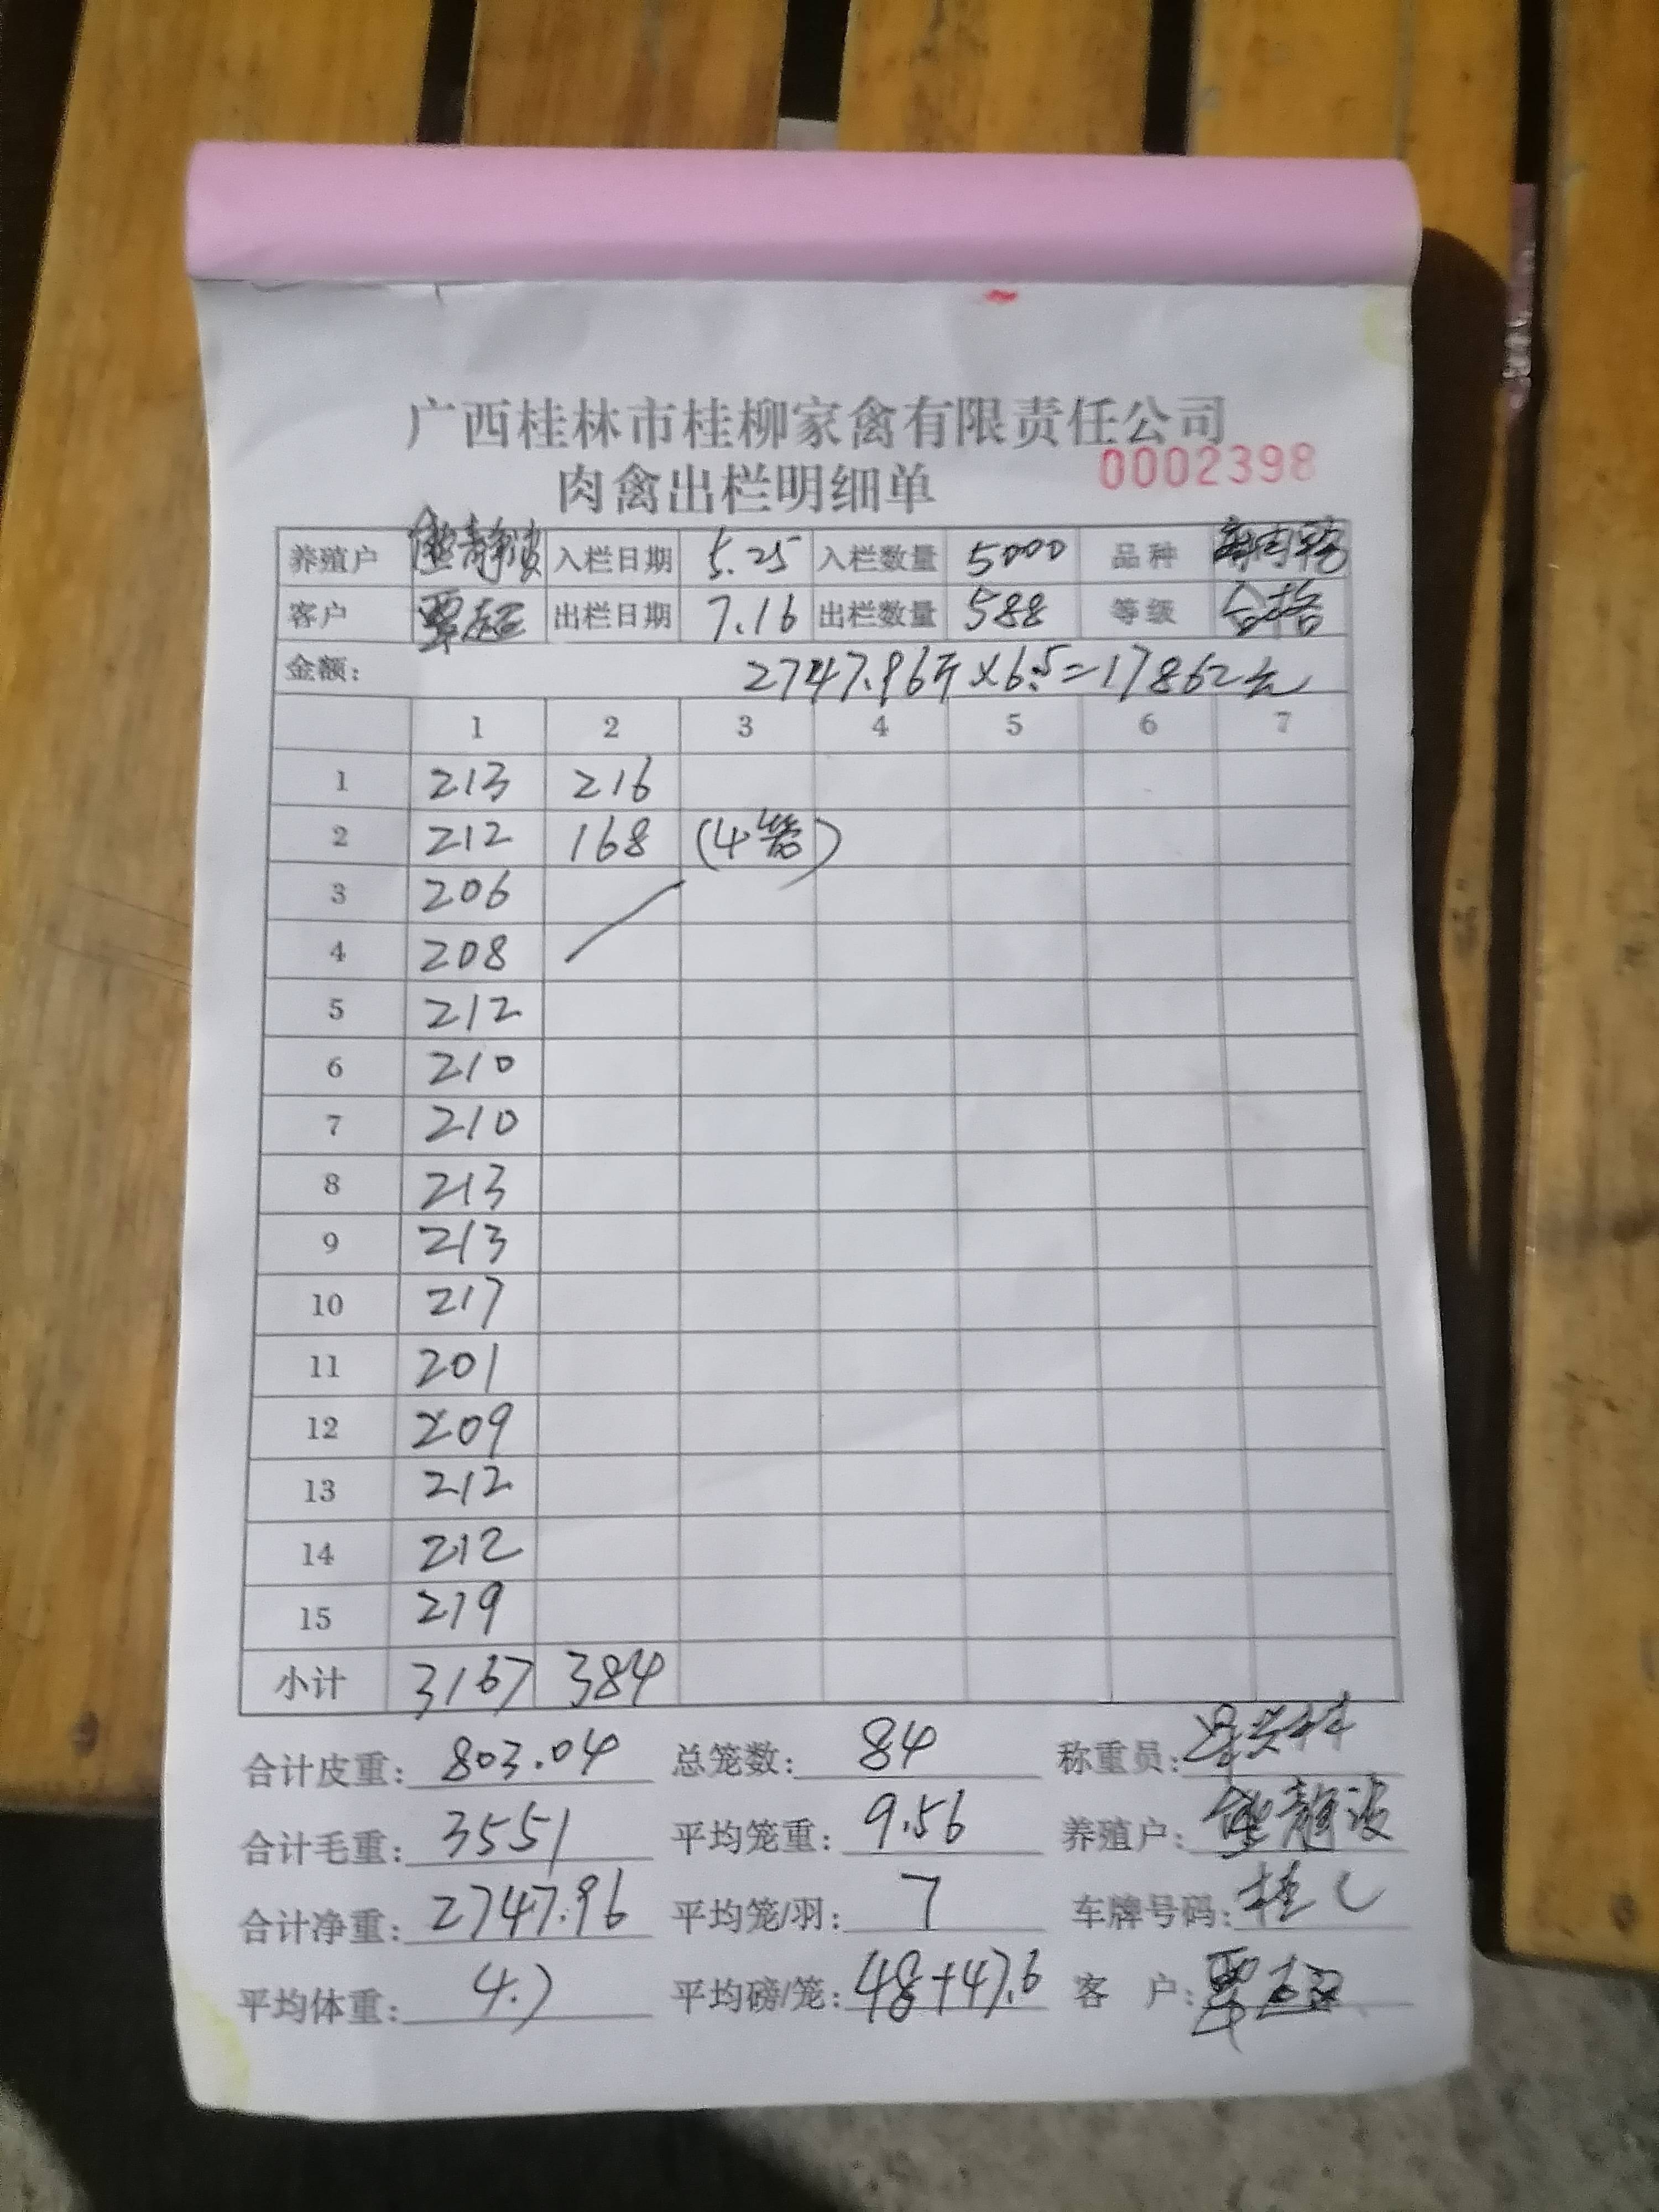 广西桂林市桂柳家禽有限责任公司
肉禽出栏明细单 0002398
养殖户 熊静波 入栏日期 5.25 入栏数量 5000 品种
客户 覃超 出栏日期 7.16 出栏数量 588 等级 合格
金额: 2747.96斤×6.5=17862元
1 2 3 4 5 6 7
1 213 216
2 212 168 (4笼)
3 206
4 208
5 212
6 210
7 210
8 213
9 213
10 217
11 201
12 209
13 212
14 212
15 219
小计 3167 384
合计皮重: 803.04 总笼数: 84 称重员:
合计毛重: 3551 平均笼重: 9.56 养殖户: 熊静波
合计净重: 2747.96 平均笼/羽: 7 车牌号码: 桂C
平均体重: 4.7 平均磅/笼: 48+47.6 客 户: 覃超